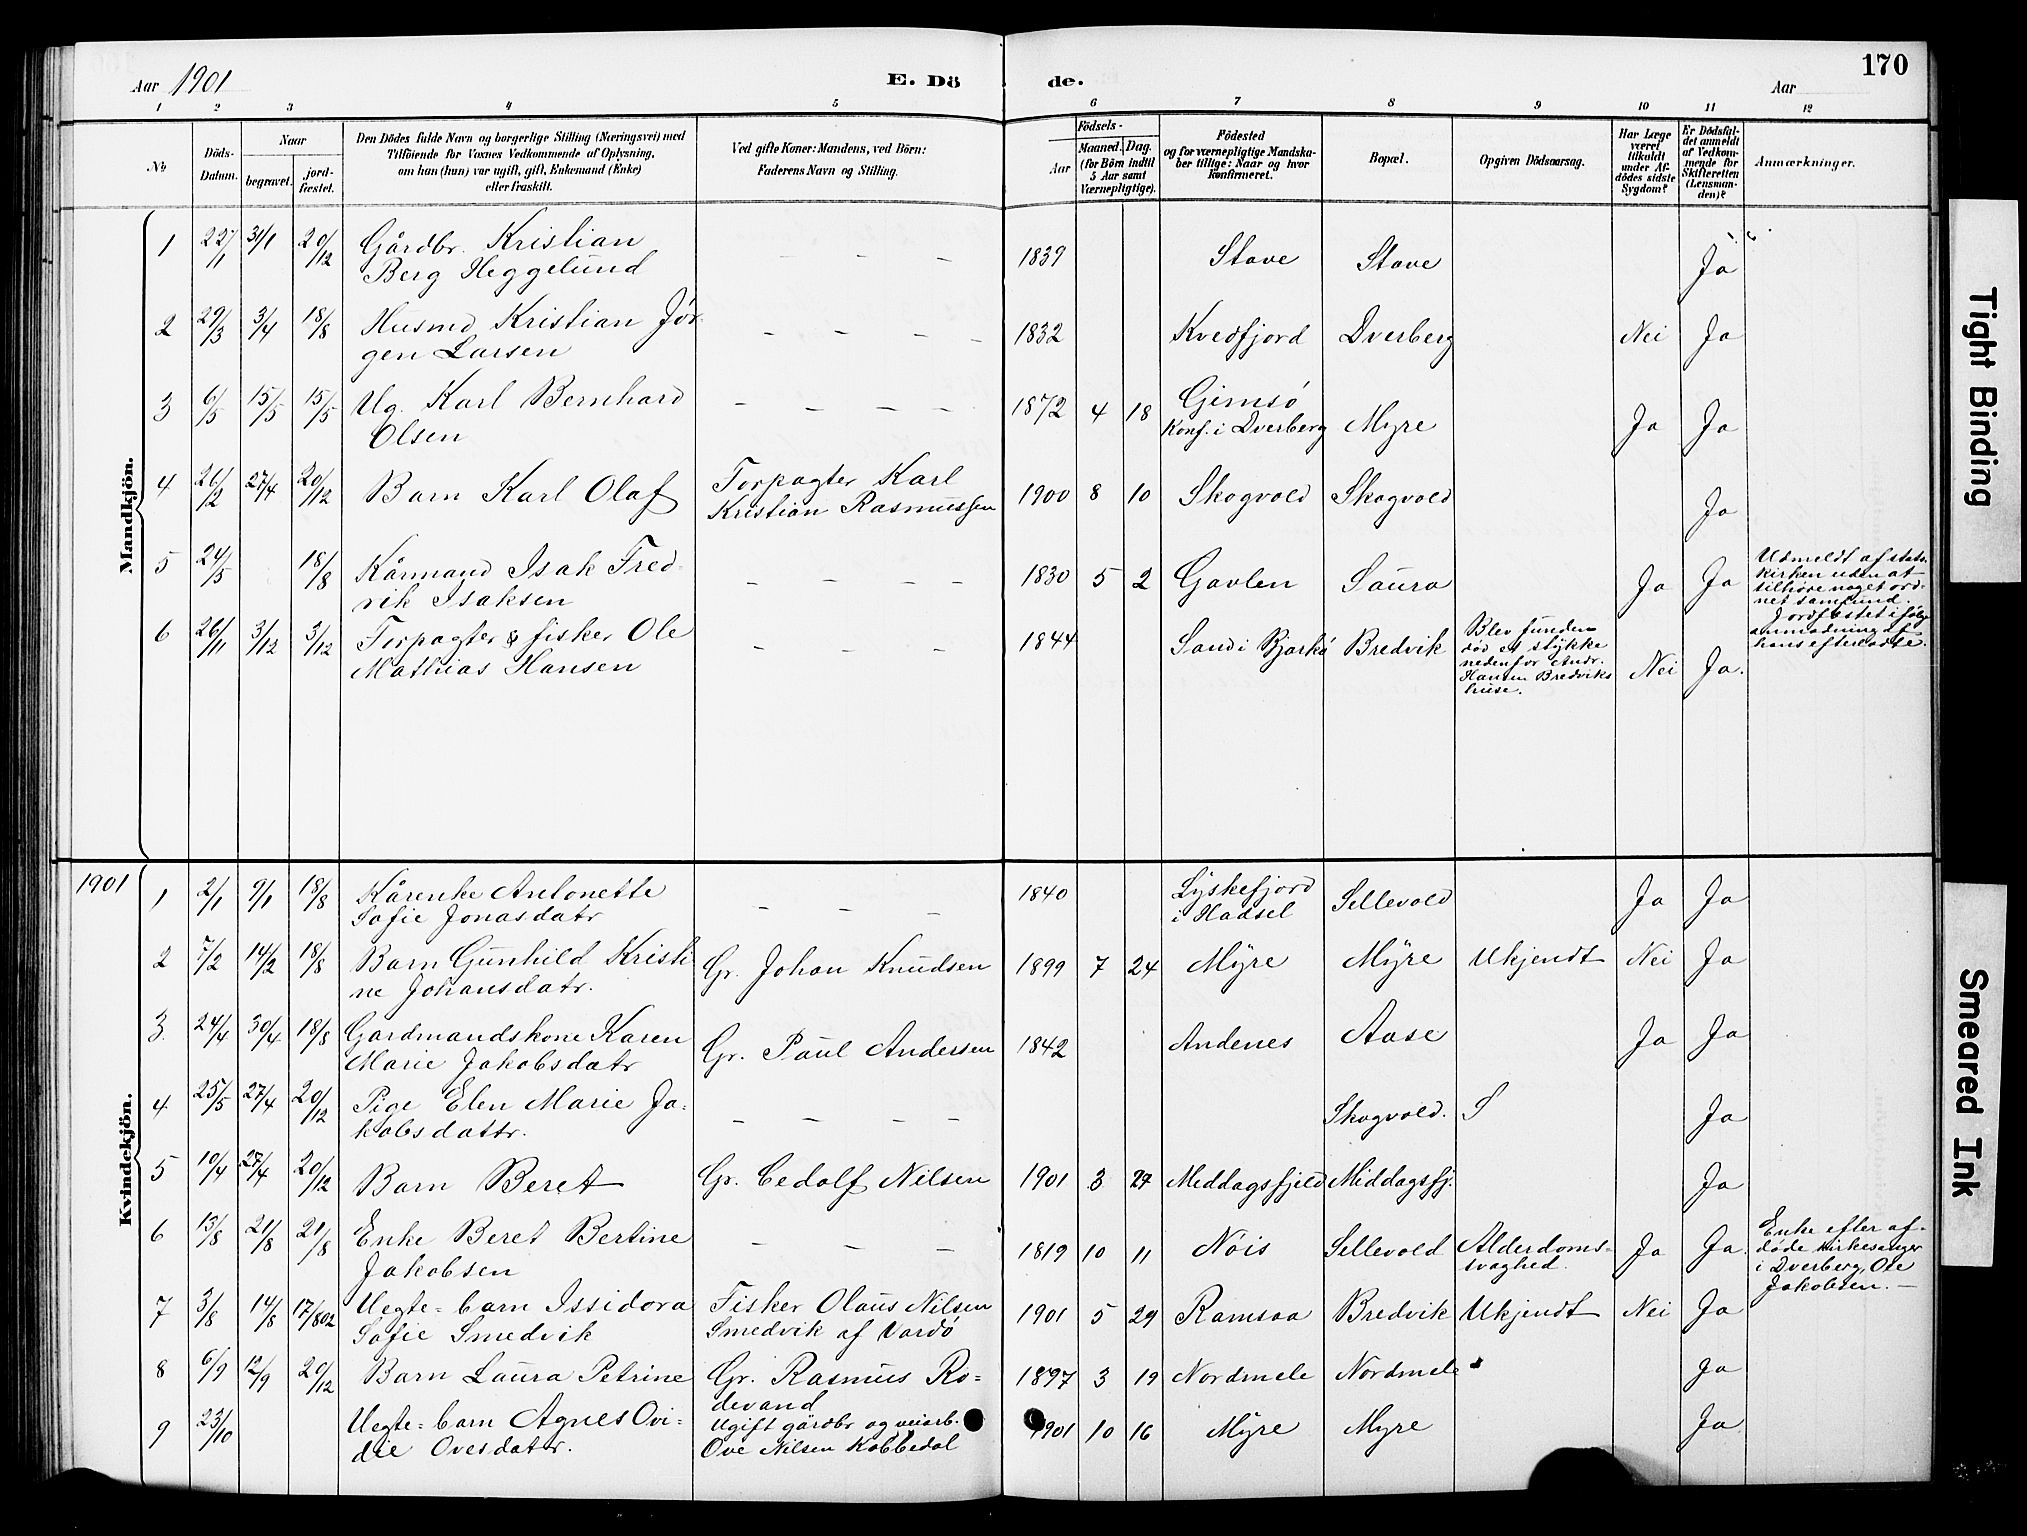 Aar 1901
E. Dö
de.
Aar
170
1 2 3 4 5 6 7 8 9 10 11 12
No
Döds-
Datum.
Naar
begravet.
jord-
fæstet.
Den Dödes fulde Navn og borgerlige Stilling (Næringsvei) med
Tilföiende for Voxnes Vedkommende af Oplysning,
om han (hun) var ugift, gift, Enkemand (Enke)
eller fraskilt.
Ved gifte Koner: Mandens, ved Börn:
Faderens Navn og Stilling.
Födsels-
Aar
Maaned. Dag.
(for Börn indtil
5 Aar samt
Værnepligtige).
Födested
og for værnepligtige Mandska-
ber tillige: Naar og hvor
Konfirmeret.
Bopæl.
Opgiven Dödsaarsag.
Har Læge
været
tilkaldt
under Af-
dödes sidste
Sygdom?
Er Dödsfal-
det anmeldt
af Vedkom-
mende for
Skifteretten
(Lensman-
den)?
Anmærkninger.
Mandkjön.
1 22/1 31/1 20/12 Gårdbr. Kristian
Berg Heggelund
— — — 1839 Stave Stave Ja
2 29/3 3/4 18/8 Husmd Kristian Jør-
gen Larsen
— — — — 1832 Kvedfjord Dverberg Nei Ja
3 6/5 15/5 15/5 Ug. Karl Bernhard
Olsen
— — — — 1872 4 18 Gimsö
Konf. i Dverberg Myre Ja Ja
4 26/2 27/4 20/12 Barn Karl Olaf
Forpagter Karl
Kristian Rasmussen
1900 8 10 Skogvold Skogvold Ja
5 24/5 18/8 Kårmand Isak Fred-
rik Isaksen
— — — — 1830 5 2 Gavlen Saura Ja Ja
Udmeldt af stats-
kirken uden at
tilhöre noget ord-
net samfund.
Jordfæstet i følge
anmodning af
hans efterladte.
6 26/11 3/12 3/12 Forpagter & fisker Ole
Mathias Hansen
— — — 1844 Sand i Bjarkö Bredvik
Blev funden
död et stykke
nedenfor Andr.
Hansen Bredviks
huse.
Nei Ja.
1901
Kvindekjön.
1 2/1 9/1 18/8 Kårenke Antonette
Sofie Jonasdatr
— — — 1840 Lyskefjord
i Hadsel Sellevold Ja Ja
2 7/2 14/2 18/8 Barn Gunhild Kristi-
ne Johansdatr.
Gr. Johan Knudsen 1899 7 24 Myre Myre Ukjendt Nei Ja
3. 24/4 30/4 18/8 Gardmandskone Karen
Marie Jakobsdatr
Gr. Paul Andersen 1842 Andenes Aase Ja Ja
4 25/5 27/4 20/12 Pige Elen Marie Ja-
kobsdattr.
— — — — Skogvold. S Ja
5 10/4 27/4 20/12 Barn Beret
Gr. Cedolf Nilsen 1901 3 27 Meddagsfjeld Middagsfj. Ja
6 13/8 21/8 21/8 Enke Beret Bertine
Jakobsen
— — — 1819 10 11 Nöis Sellevold Alderdoms-
svaghed. Ja Ja.
Enke efter af-
döde kirkesanger
i Dverberg, Ole
Jakobsen. —
7 3/8 14/8 17/8 02 Uegte-barn Issidora
Sofie Smedvik
Fisker Olaus Nilsen
Smedvik af Vardö
1901 5 29 Ramsaa Bredvik Ukjendt Nei Ja
8 6/9 12/9 20/12 Barn Laura Petrine
Gr. Rasmus Ro-
devand
1897 3 19 Nordmele Nordmele Ja
9 23/10 Uegte-barn Agnes Ovi-
die Ovesdatr.
Ugift gårdbr og veiarb.
Ove Nilsen Kobbedal
1901 10 16 Myre Myre Ja
Tight Binding
Smeared Ink